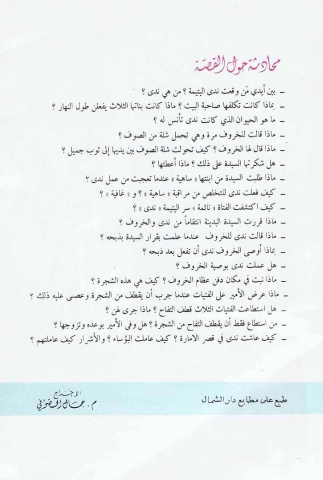 محادثة حول القصّة
– بين أيدي مَن وقعت ندى اليتيمة ؟ من هي ندى ؟
– بماذا كانت تكلفها صاحبة البيت ؟ ماذا كانت بناتها الثلاث يفعلن طول النهار ؟
– ما هو الحيوان الذي كانت ندى تأنس له ؟
– ماذا قالت للخروف مرة وهي تحمل شلة من الصوف ؟
– ماذا قال لها الخروف ؟ كيف تحولت شلة الصوف بين يديها إلى ثوب جميل ؟
– هل شكرتها السيدة على ذلك ؟ ماذا أعطتها ؟
– ماذا طلبت السيدة من ابنتها « ساهية » عندما تعجبت من عمل ندى ؟
– كيف فعلت ندى للتخلص من مراقبة « ساهية » ؟ و « غافية » ؟
– كيف اكتشفت الفتاة « نائمة » سر اليتيمة « ندى » ؟
– ماذا قررت السيدة البدينة انتقاماً من ندى والخروف ؟
– ماذا قالت ندى للخروف عندما علمت بقرار السيدة بذبحه ؟
– بماذا أوصى الخروف ندى أن تفعل بعد ذبحه ؟
– هل عملت ندى بوصية الخروف ؟
– ماذا نبت في مكان دفن عظام الخروف ؟ كيف هي هذه الشجرة ؟
– ماذا عرض الأمير على الفتيات عندما جرب أن يقطف من الشجرة وعصي عليه ذلك ؟
– هل استطاعت الفتيات الثلاث قطف التفاح ؟ ماذا جرى لهن ؟
– من استطاع فقط أن يقطف التفاح من الشجرة ؟ هل وفى الأمير بوعده وتزوجها ؟
– كيف عاشت ندى في قصر الامارة ؟ كيف عاملت البؤساء ؟ والأشرار كيف عاملتهم ؟
طبع على مطابع دار الشمال
الإخراج